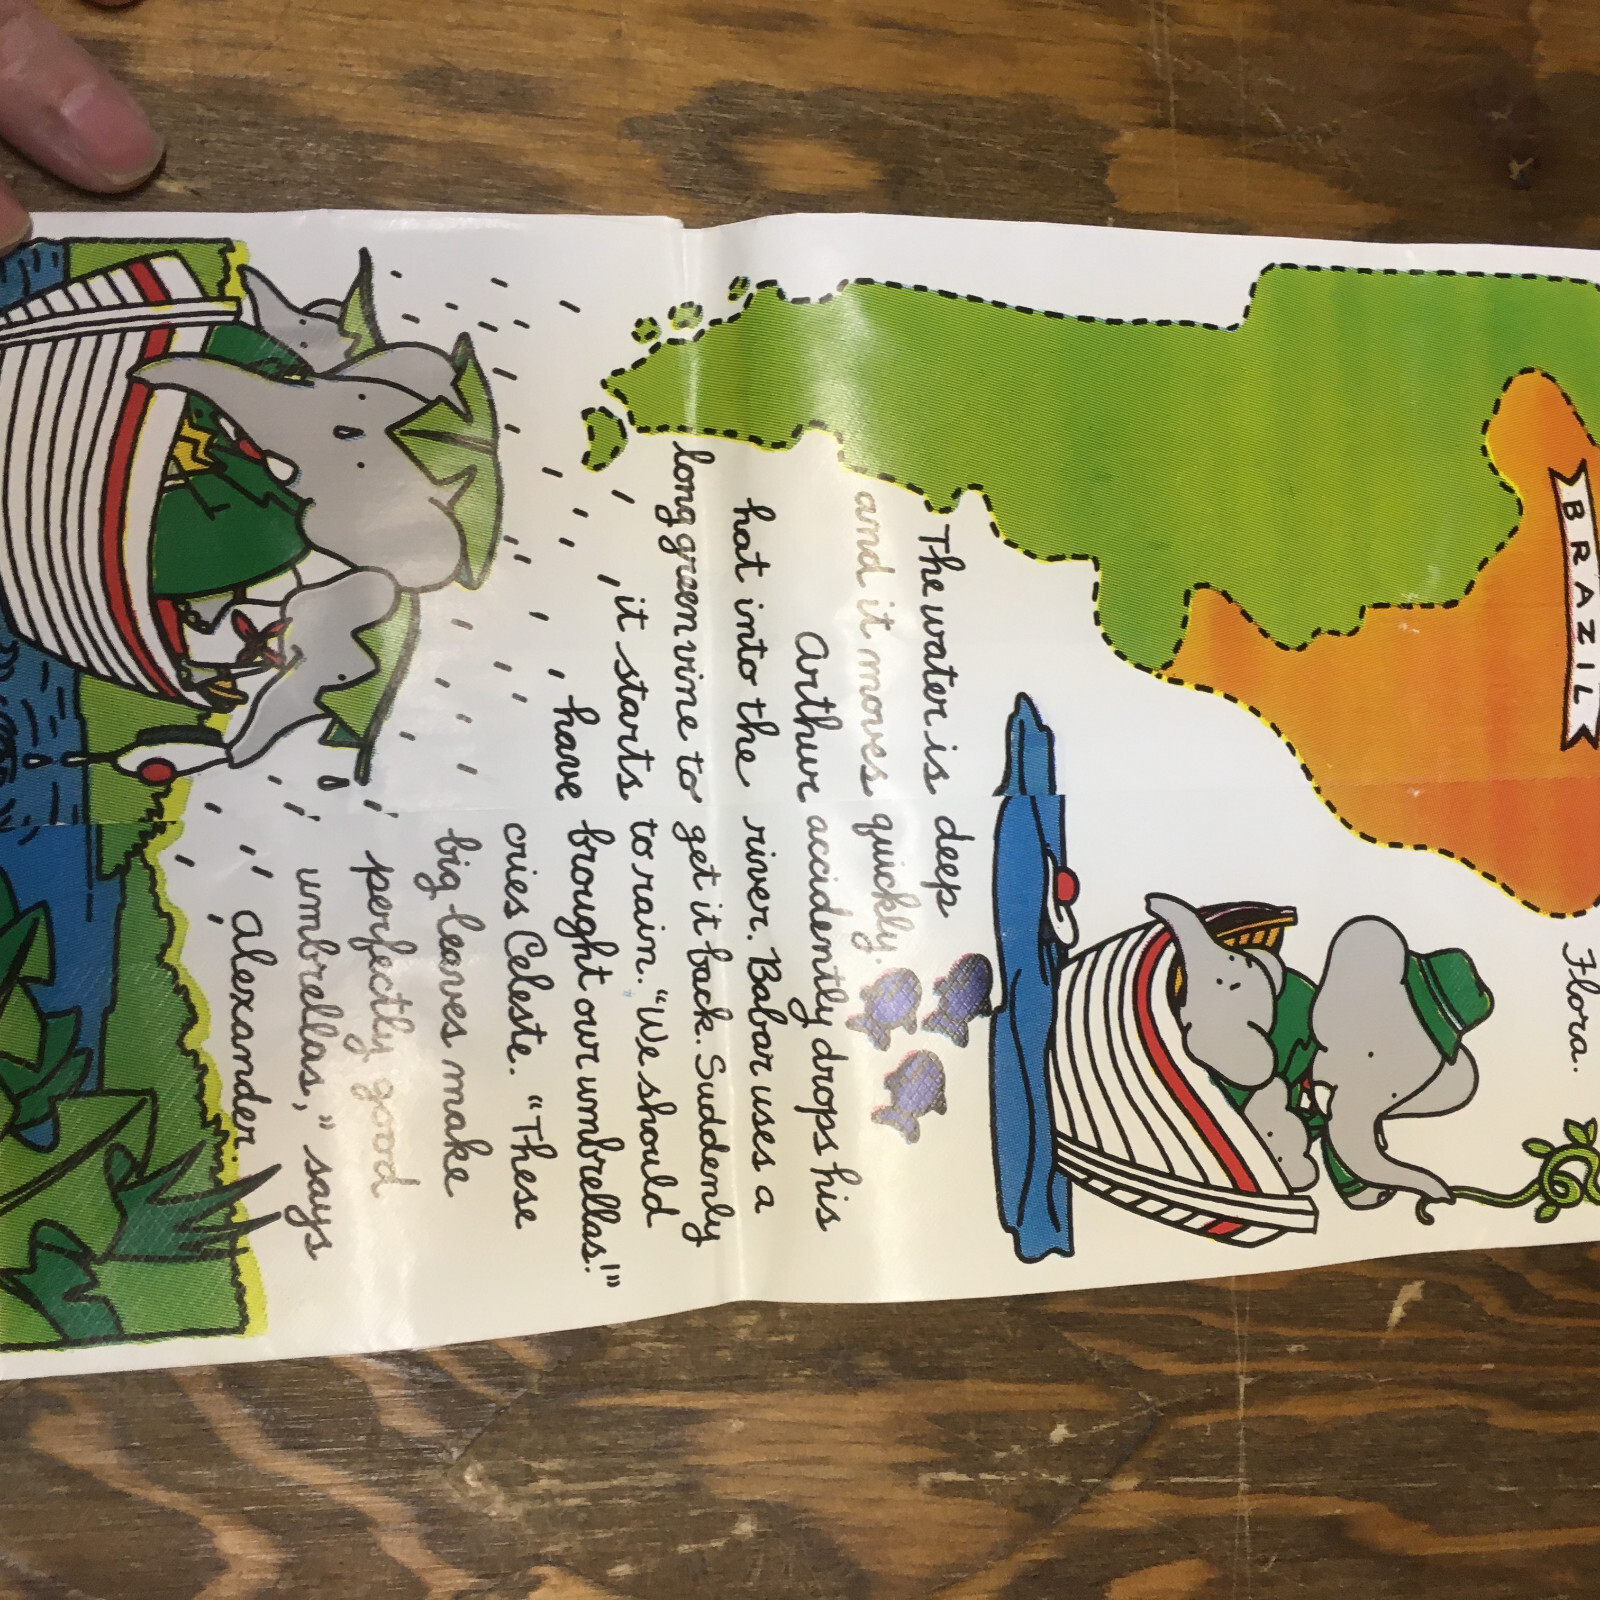 BRAZIL
Flora.
The water is deep
and it moves quickly.
Arthur accidently drops his
hat into the river. Babar uses a
long green vine to get it back. Suddenly
it starts to rain. "We should
have brought our umbrellas!"
cries Celeste. "These
big leaves make
perfectly good
umbrellas," says
Alexander.